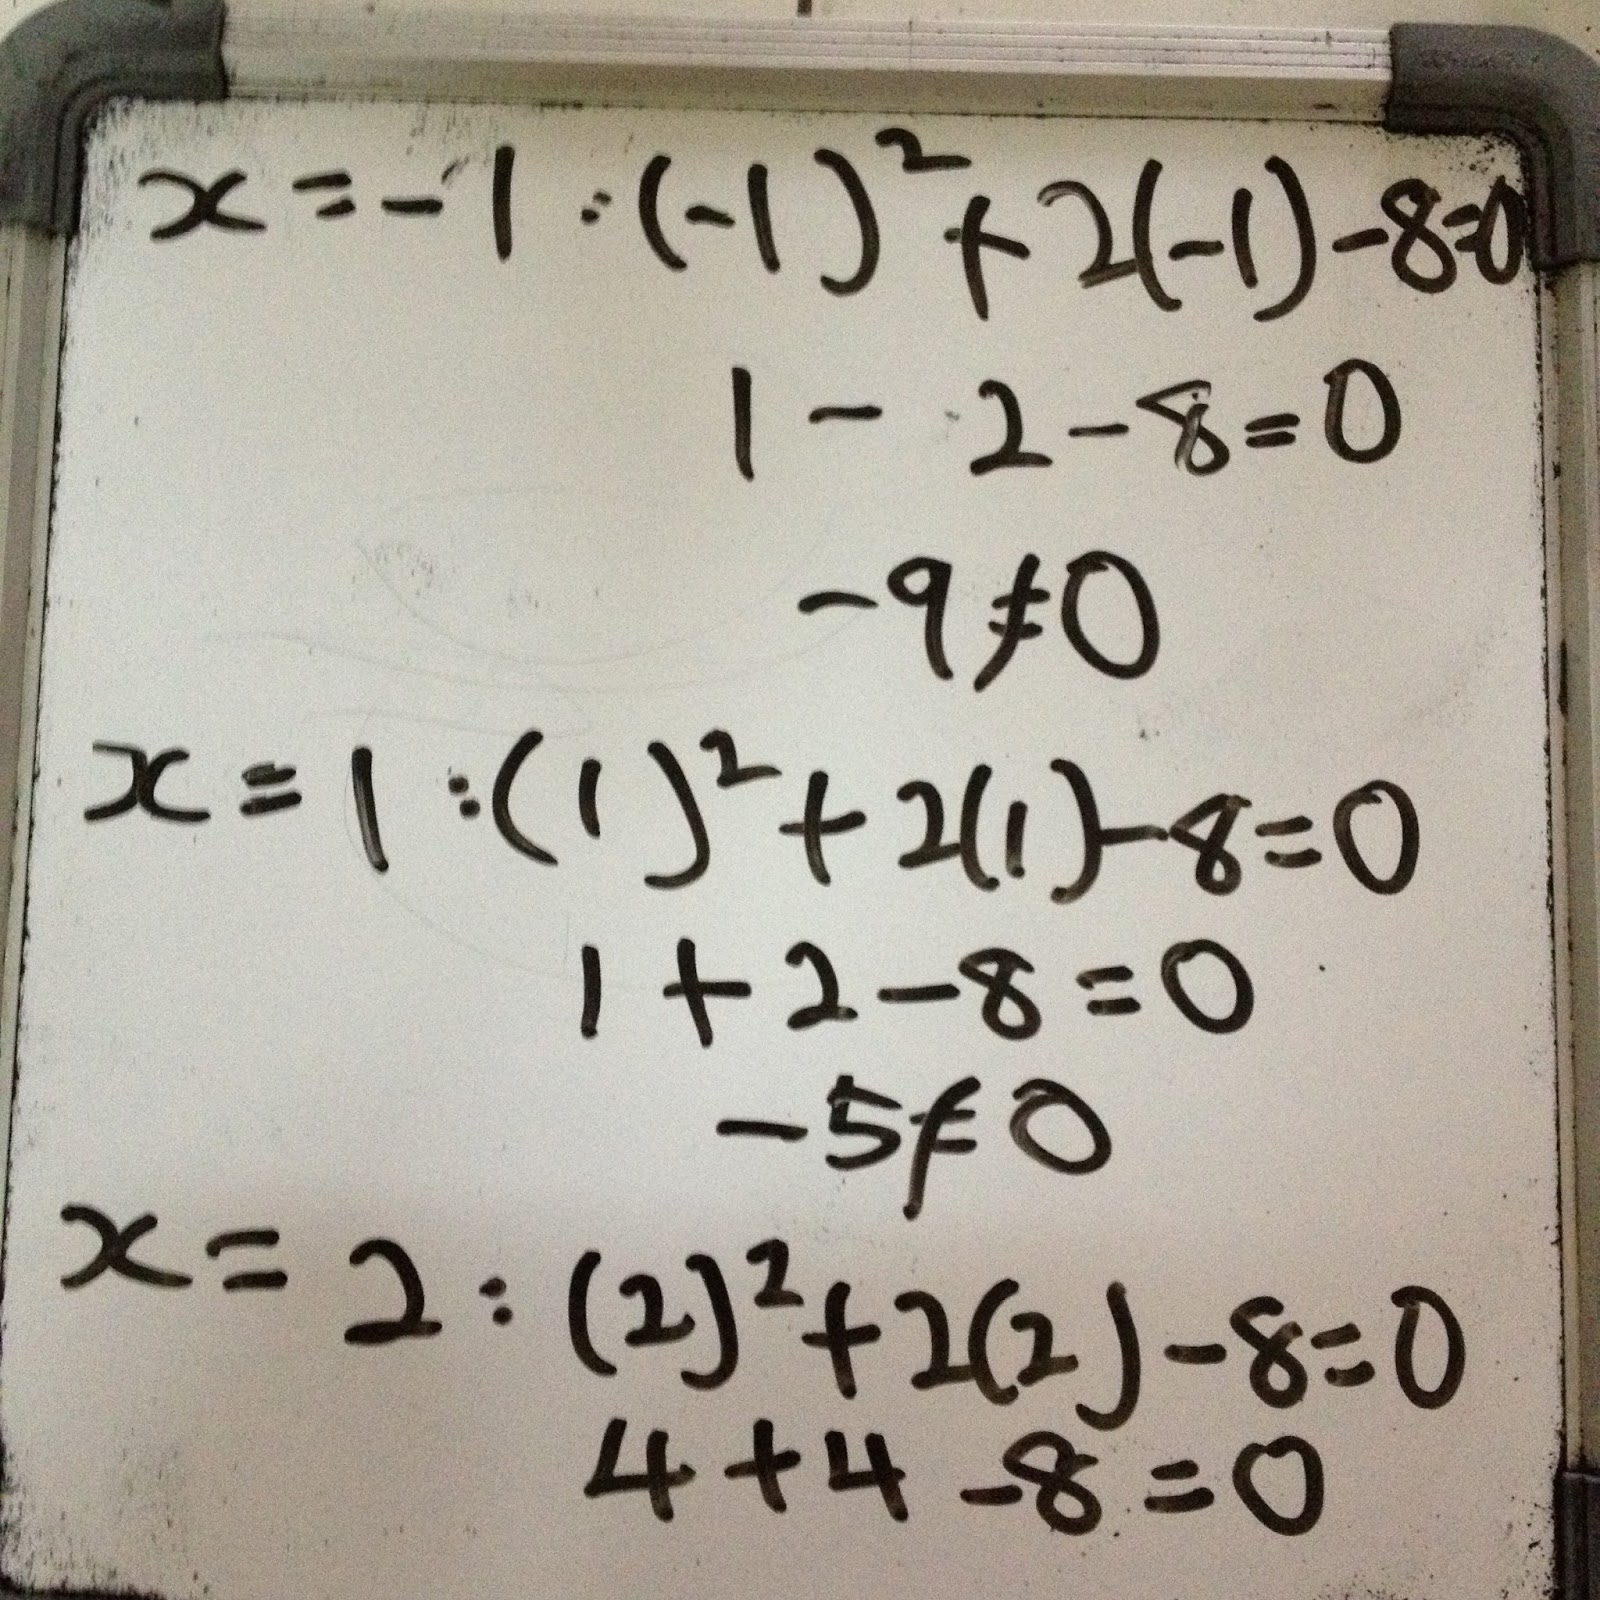 x = -1 : (-1)² + 2(-1) - 8 = 0
1 - 2 - 8 = 0
-9 ≠ 0
x = 1 : (1)² + 2(1) - 8 = 0
1 + 2 - 8 = 0
-5 ≠ 0
x = 2 : (2)² + 2(2) - 8 = 0
4 + 4 - 8 = 0